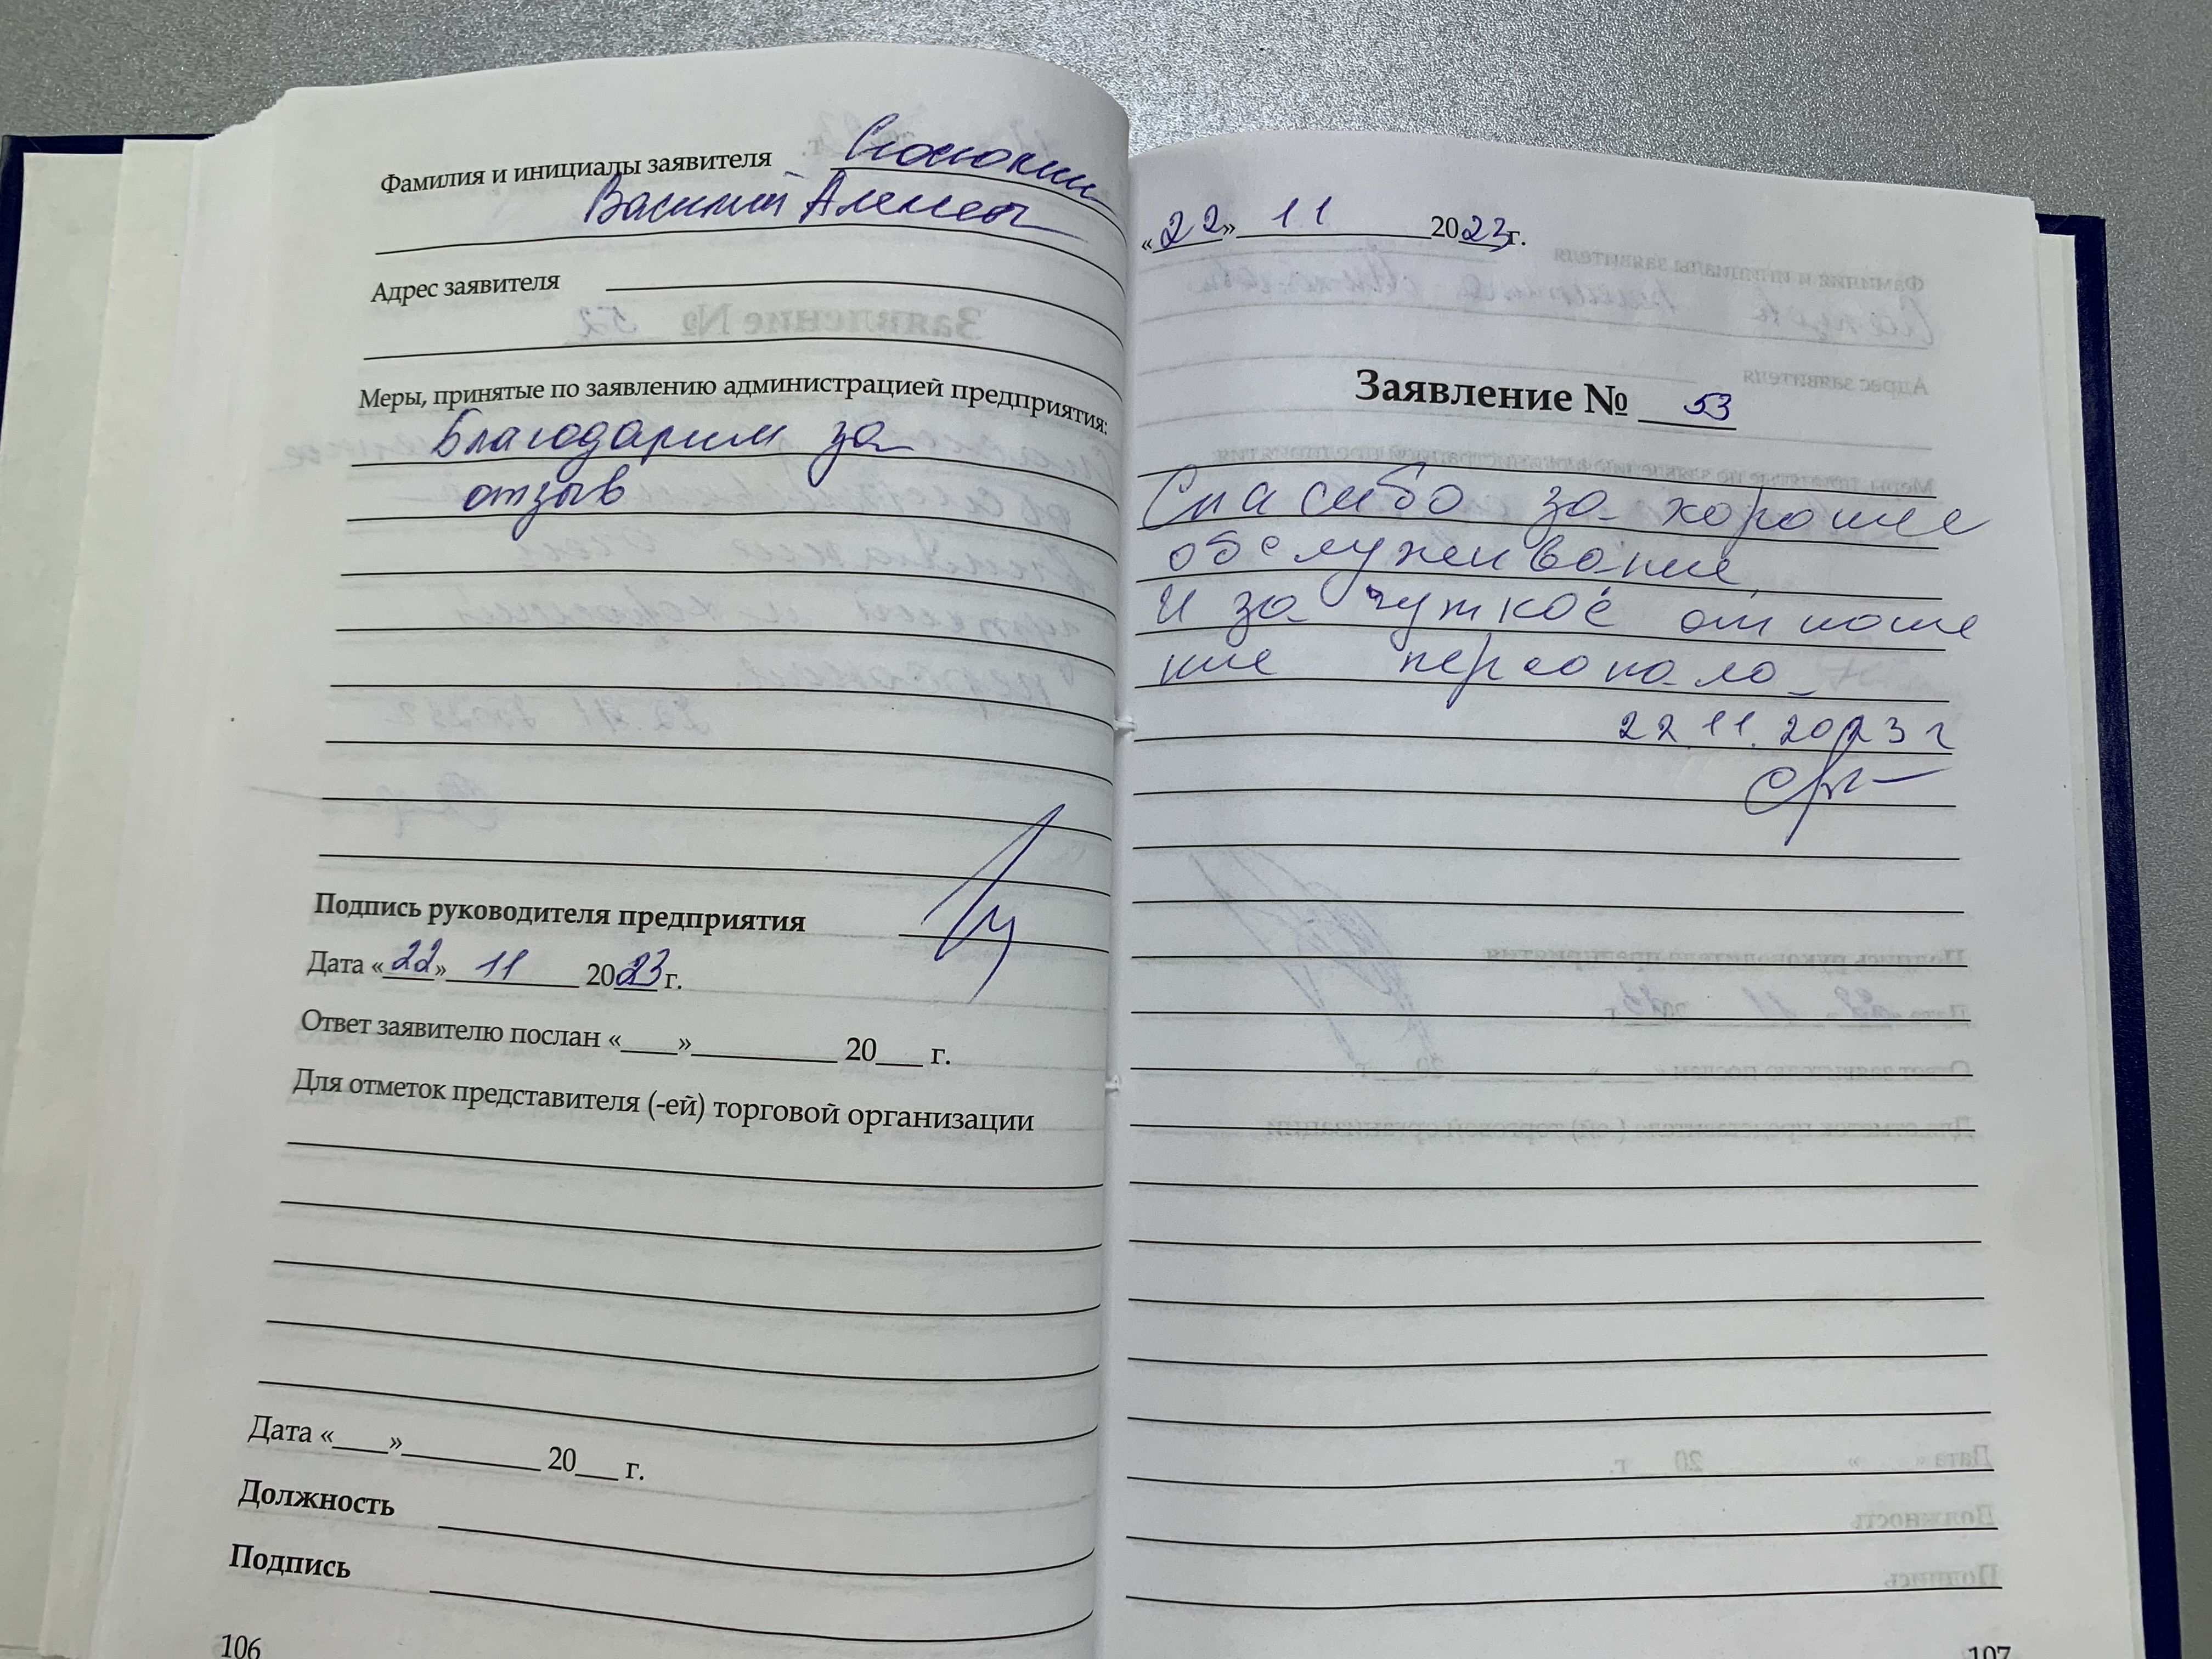 Фамилия и инициалы заявителя
Василий Алексеев
Адрес заявителя
Меры, принятые по заявлению администрацией предприятия:
Благодарим за
отзыв
Подпись руководителя предприятия
Дата «22» 11 2023 г.
Ответ заявителю послан «____»__________ 20___ г.
Для отметок представителя (-ей) торговой организации
Дата «____»__________ 20___ г.
Должность
Подпись
106
«22» 11 2023г.
Заявление № 53
Спасибо за хорошее
обслуживание
И за чуткое отноше
ние персонала
22.11.2023 г
107